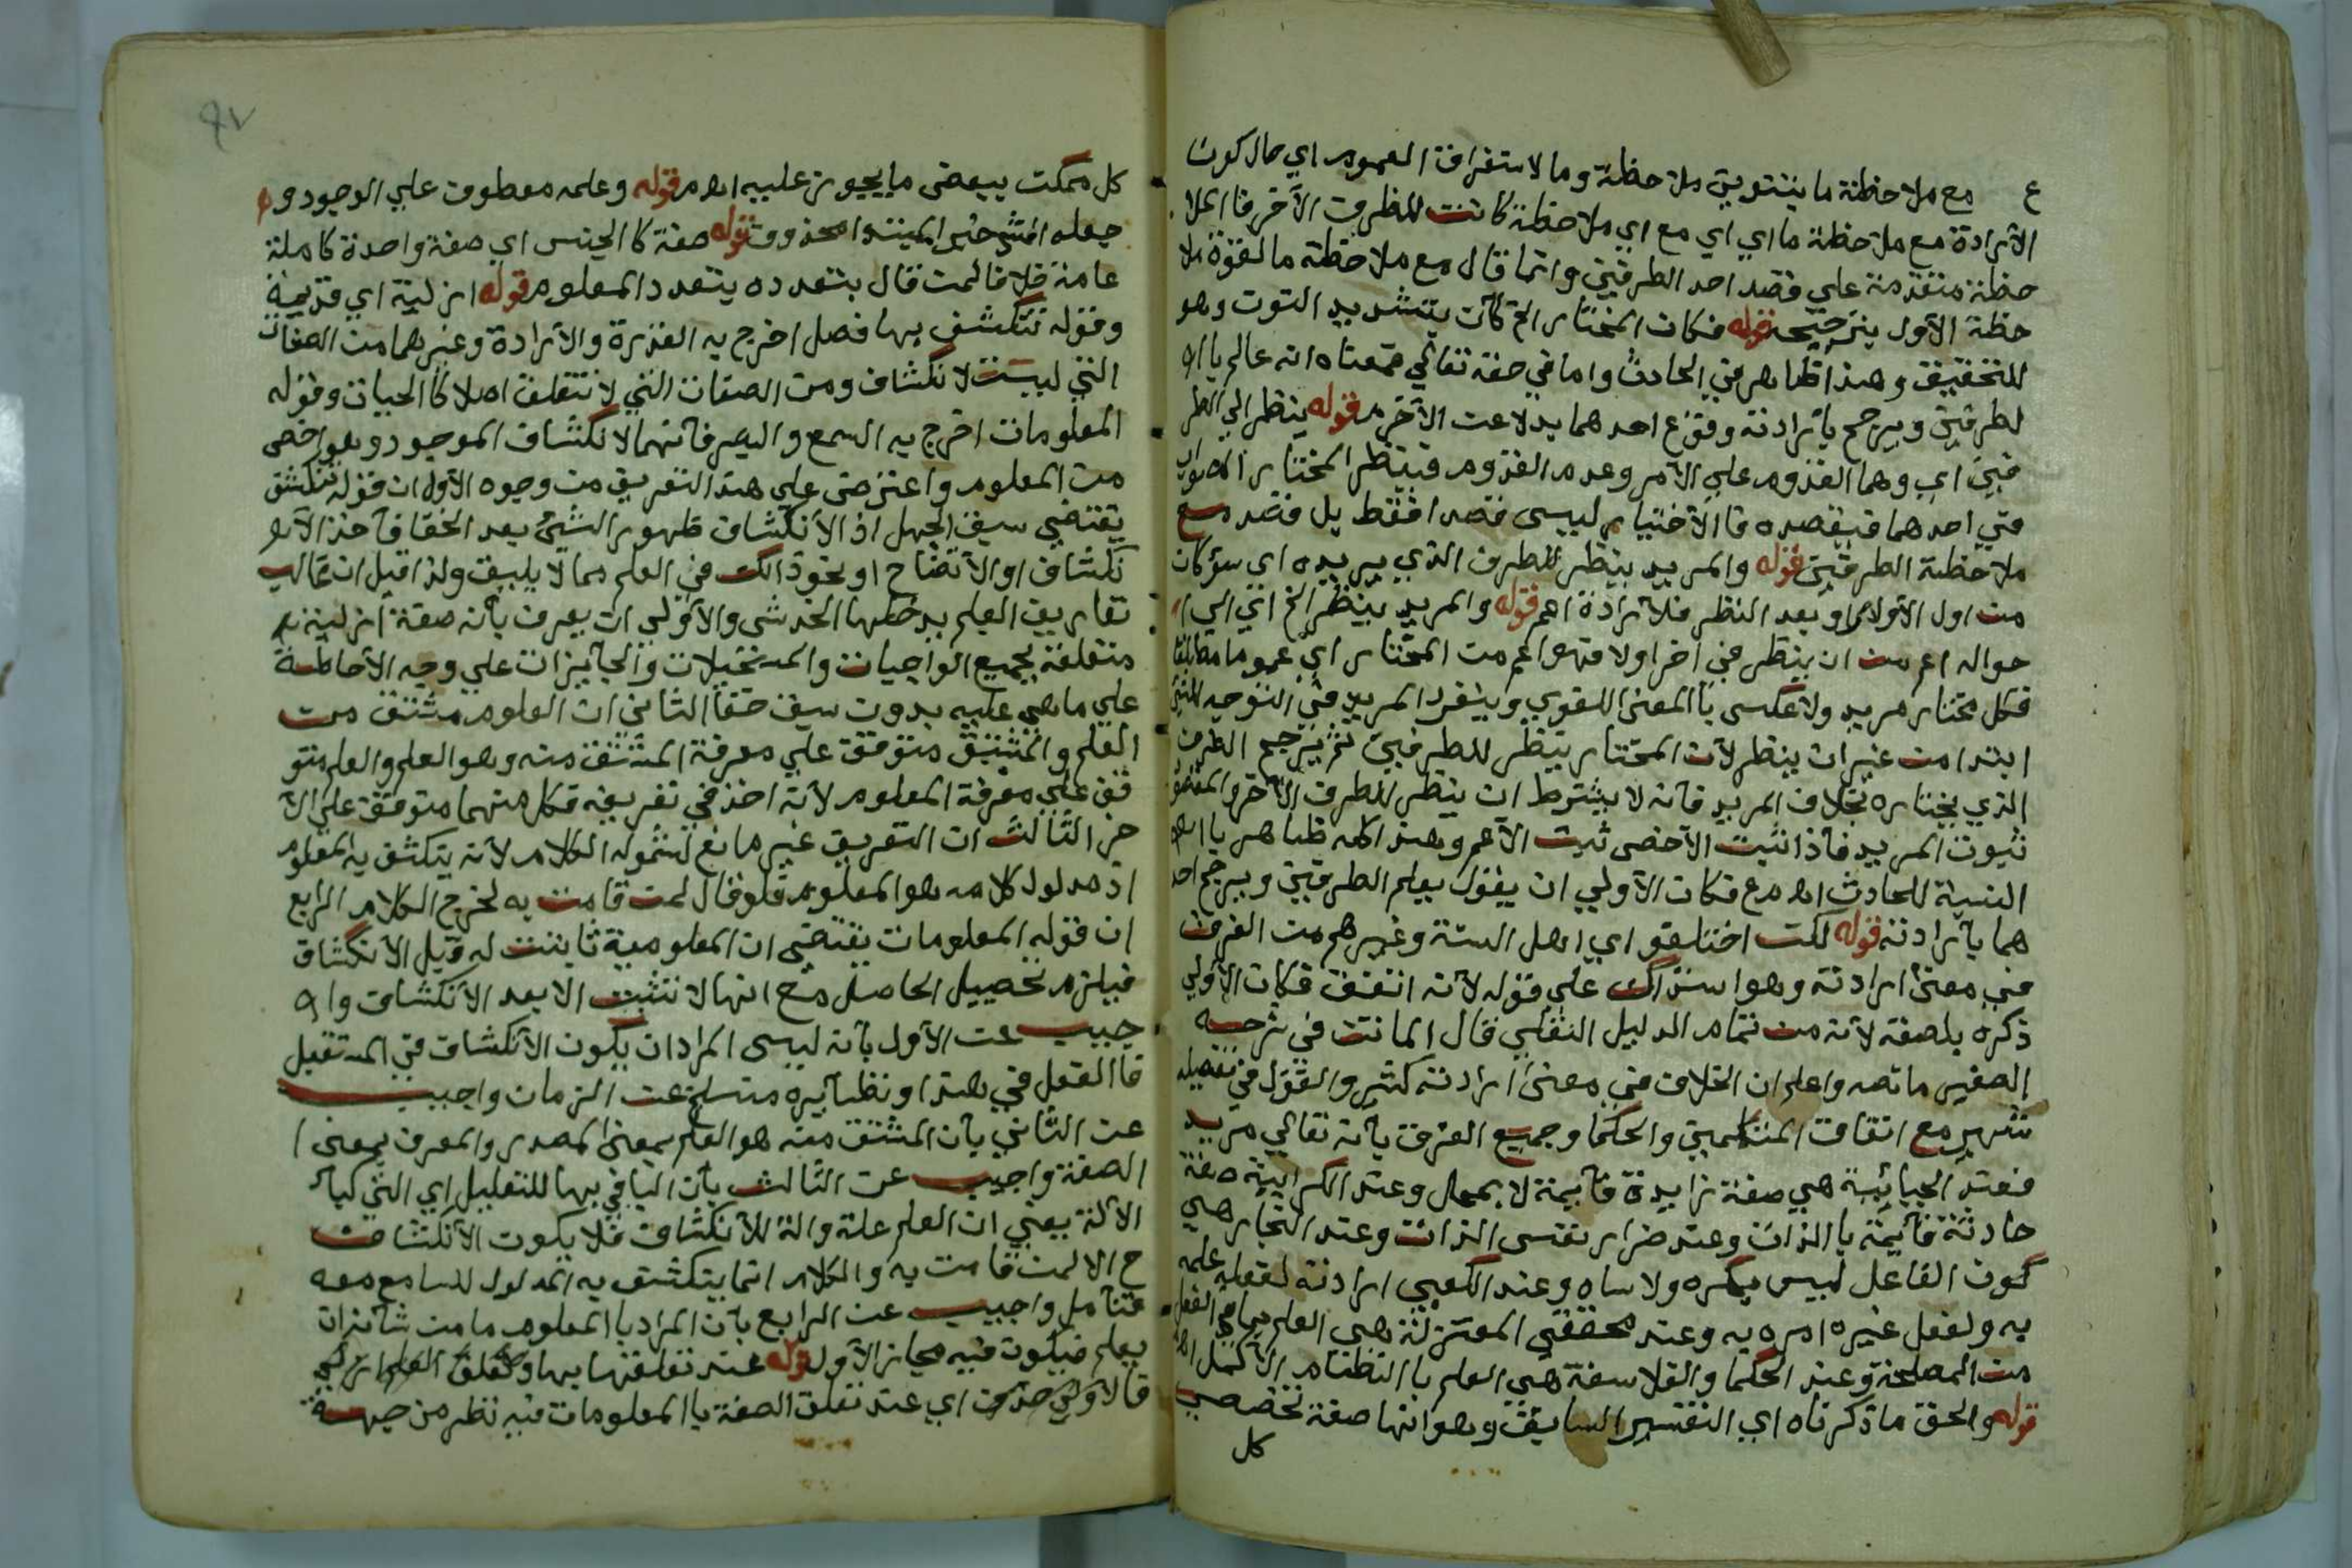 ع مع ملاحظة ما ينتويق ملاحظة وما لاستغراق العموم اي حال كون
الارادة مع ملاحظة ما اي اي مع اي ملاحظة كانت للطرف الآخر فا الملا
حظة متقدمة علي قصد احد الطرفين وانما قال مع ملاحظة ما لقوة ملا
حظة الأول بترجيحه قوله فكان المختار الخ كأن بتشديد النون وهو
للتحقيق وهذا ظاهر في الحادث واما في حقه تعالي فمعناه انه عالم باا
لطرفين ويرجح بارادته وقوع احدهما بدلا عن الآخر م قوله ينظر الي الطر
فين اي وهما القدوم علي الأمر وعدم القدوم فينظر المختار الصواب
في احدهما فيقصده فا الأختيار ليس قصدا فقط بل قصد مع
ملاحظة الطرفين قوله والمريد ينظر للطرف الذي يريده اي سؤكان
من اول الأولام او بعد النظر فلارادة اعم قوله والمريد ينظر الخ اي الي ا
حواله اعم من ان ينظر في اخر اولا فهو اعم من المختار اي عموما مطلقا
فكل مختار مريد ولا عكس باالمعني اللغوي وينفرد المريد في التوجيه للشئ
ابتدا من غير ان ينظر لأن المختار ينظر للطرفين ثم يرجح الطرف
الذي يختاره بخلاف المريد فأنه لا يشترط ان ينظر للطرف الآخر والمقصو
ثبوت المريد فأذا ثبت الأخص ثبت الأعم وهذا كله ظاهر باا
لنسبة للحادث اهم ع فكان الأولي ان يقول يعلم الطرفين ويرجح احد
هما بارادته قوله لكن اختلفو اي اهل السنة وغيرهم من الفرق
في معني ارادته وهو استدراك علي قوله لأنه اتفق فكان الأولي
ذكره بلصقه لأنه من تمام الدليل النقلي قال المانتن في شرحه
الصغير ما نصه واعلم ان الخلاف في معني ارادته كثير والقول في تفصيله
شهير مع اتفاق المتكلمين والحكما وجميع الفرق بأنه تعالي مريد
فعند الجبائية هي صفة زايدة قأيمة لا بمحل وعند الكرامية صفة
حادثة قأيمة باالذات وعند ضرار نفس الذات وعند النجار هي
كون الفاعل ليس بمكره ولا ساه وعند الكعبي ارادته لفعله علمه
به ولفعل غيره امره به وعند محققي المعتزلة هي العلم بما في الفعل
من المصلحة وعند الحكما والفلاسفة هي العلم باالنظام الأكمل اه
قوله والحق ما ذكرناه اي التفسير السابق وهو انها صفة تخصص
كل
كل ممكن ببعض ما يجوز عليه اهم قوله وعلمه معطوف علي الوجود و
جعله خبر المبتدا محذوف قوله صفة كا الجنس اي صفة واحدة كاملة
عامة خلافا لمن قال بتعدده بتعدد المعلوم قوله ازلية اي قديمة
وقوله تنكشف بها فصل اخرج به القدرة والأرادة وغيرهما من الصفات
التي ليست لانكشاف ومن الصفات التي لا تتعلق اصلا كا الحيات وقوله
المعلومات اخرج به السمع والبصر فأنهما لانكشاف الموجود وهو اخص
من المعلوم واعترض علي هذا التعريف من وجوه الأول ان قوله تنكشف
يقتضي سبق الجهل اذ الأنكشاف ظهور الشئ بعد الخفا فأخذ الأ
نكشاف او الأتضاح او نحو ذالك في العلم مما لا يليق ولذا قيل ان غالب
تعاريف العلم يدخلها الخدش والأولي ان يعرف بأنه صفة ازلية
متعلقة بجميع الواجبات والمستحيلات والجأيزات علي وجه الأحاطة
علي ما هي عليه بدون سبق خفا الثاني ان العلوم مشتق من
العلم والمشتق متوقف علي معرفة المشتق منه وهو العلم والعلم متو
قف علي معرفة المعلوم لأنه اخذ في تعريفه فكل منهما متوقف علي الآ
خر الثالث ان التعريف غير مانع لشموله الكلام لأنه ينكشف به المعلوم
اذ مدلول كلامه هو المعلوم فلو قال لمن قامت به لخرج الكلام الرابع
ان قوله المعلومات يقتضي ان المعلومية ثابتت له قبل الانكشاف
فيلزم تحصيل الحاصل مع انها لا تثبت الا بعد الأنكشاف وا
جيب عن الأول بأنه ليس المراد ان يكون الأنكشاف في المستقبل
فا الفعل في هذا ونظأيره منسلخ عن الزمان واجيب
عن الثاني بأن المشتق منه هو العلم بمعني المصدر والمعرف بمعني ا
لصفة واجيب عن الثالث بأن البا في بها للتعليل اي التي كبأ
الألة يعني ان العلم علة والة للأنكشاف فلا يكون الأنكشاف
ح الا لمن قامت به والكلام انما ينكشف به المدلول للسامع معه
فتأمل واجيب عن الرابع بأن المراد باالمعلوم ما من شأنه ان
يعلم فيكون فيه مجاز الأول قوله عند تعلقها بها وتعلق العلم ازلي
فالاولي حذف اي عند تعلق الصفة باالمعلومات فيه نظر من جهة